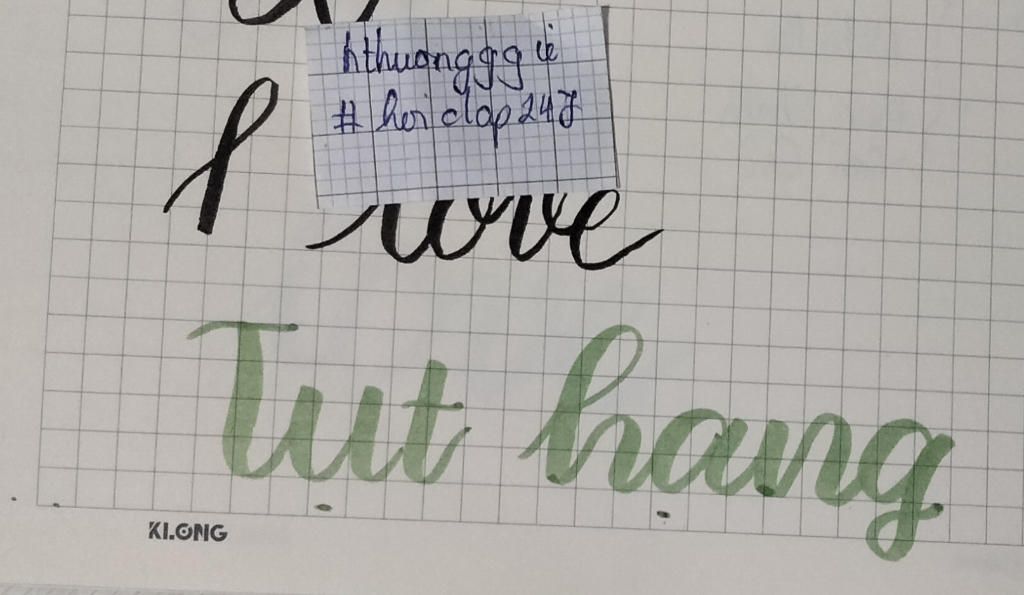 hthuongggié
# hoi clap247
I love
Tut hang
KLONG